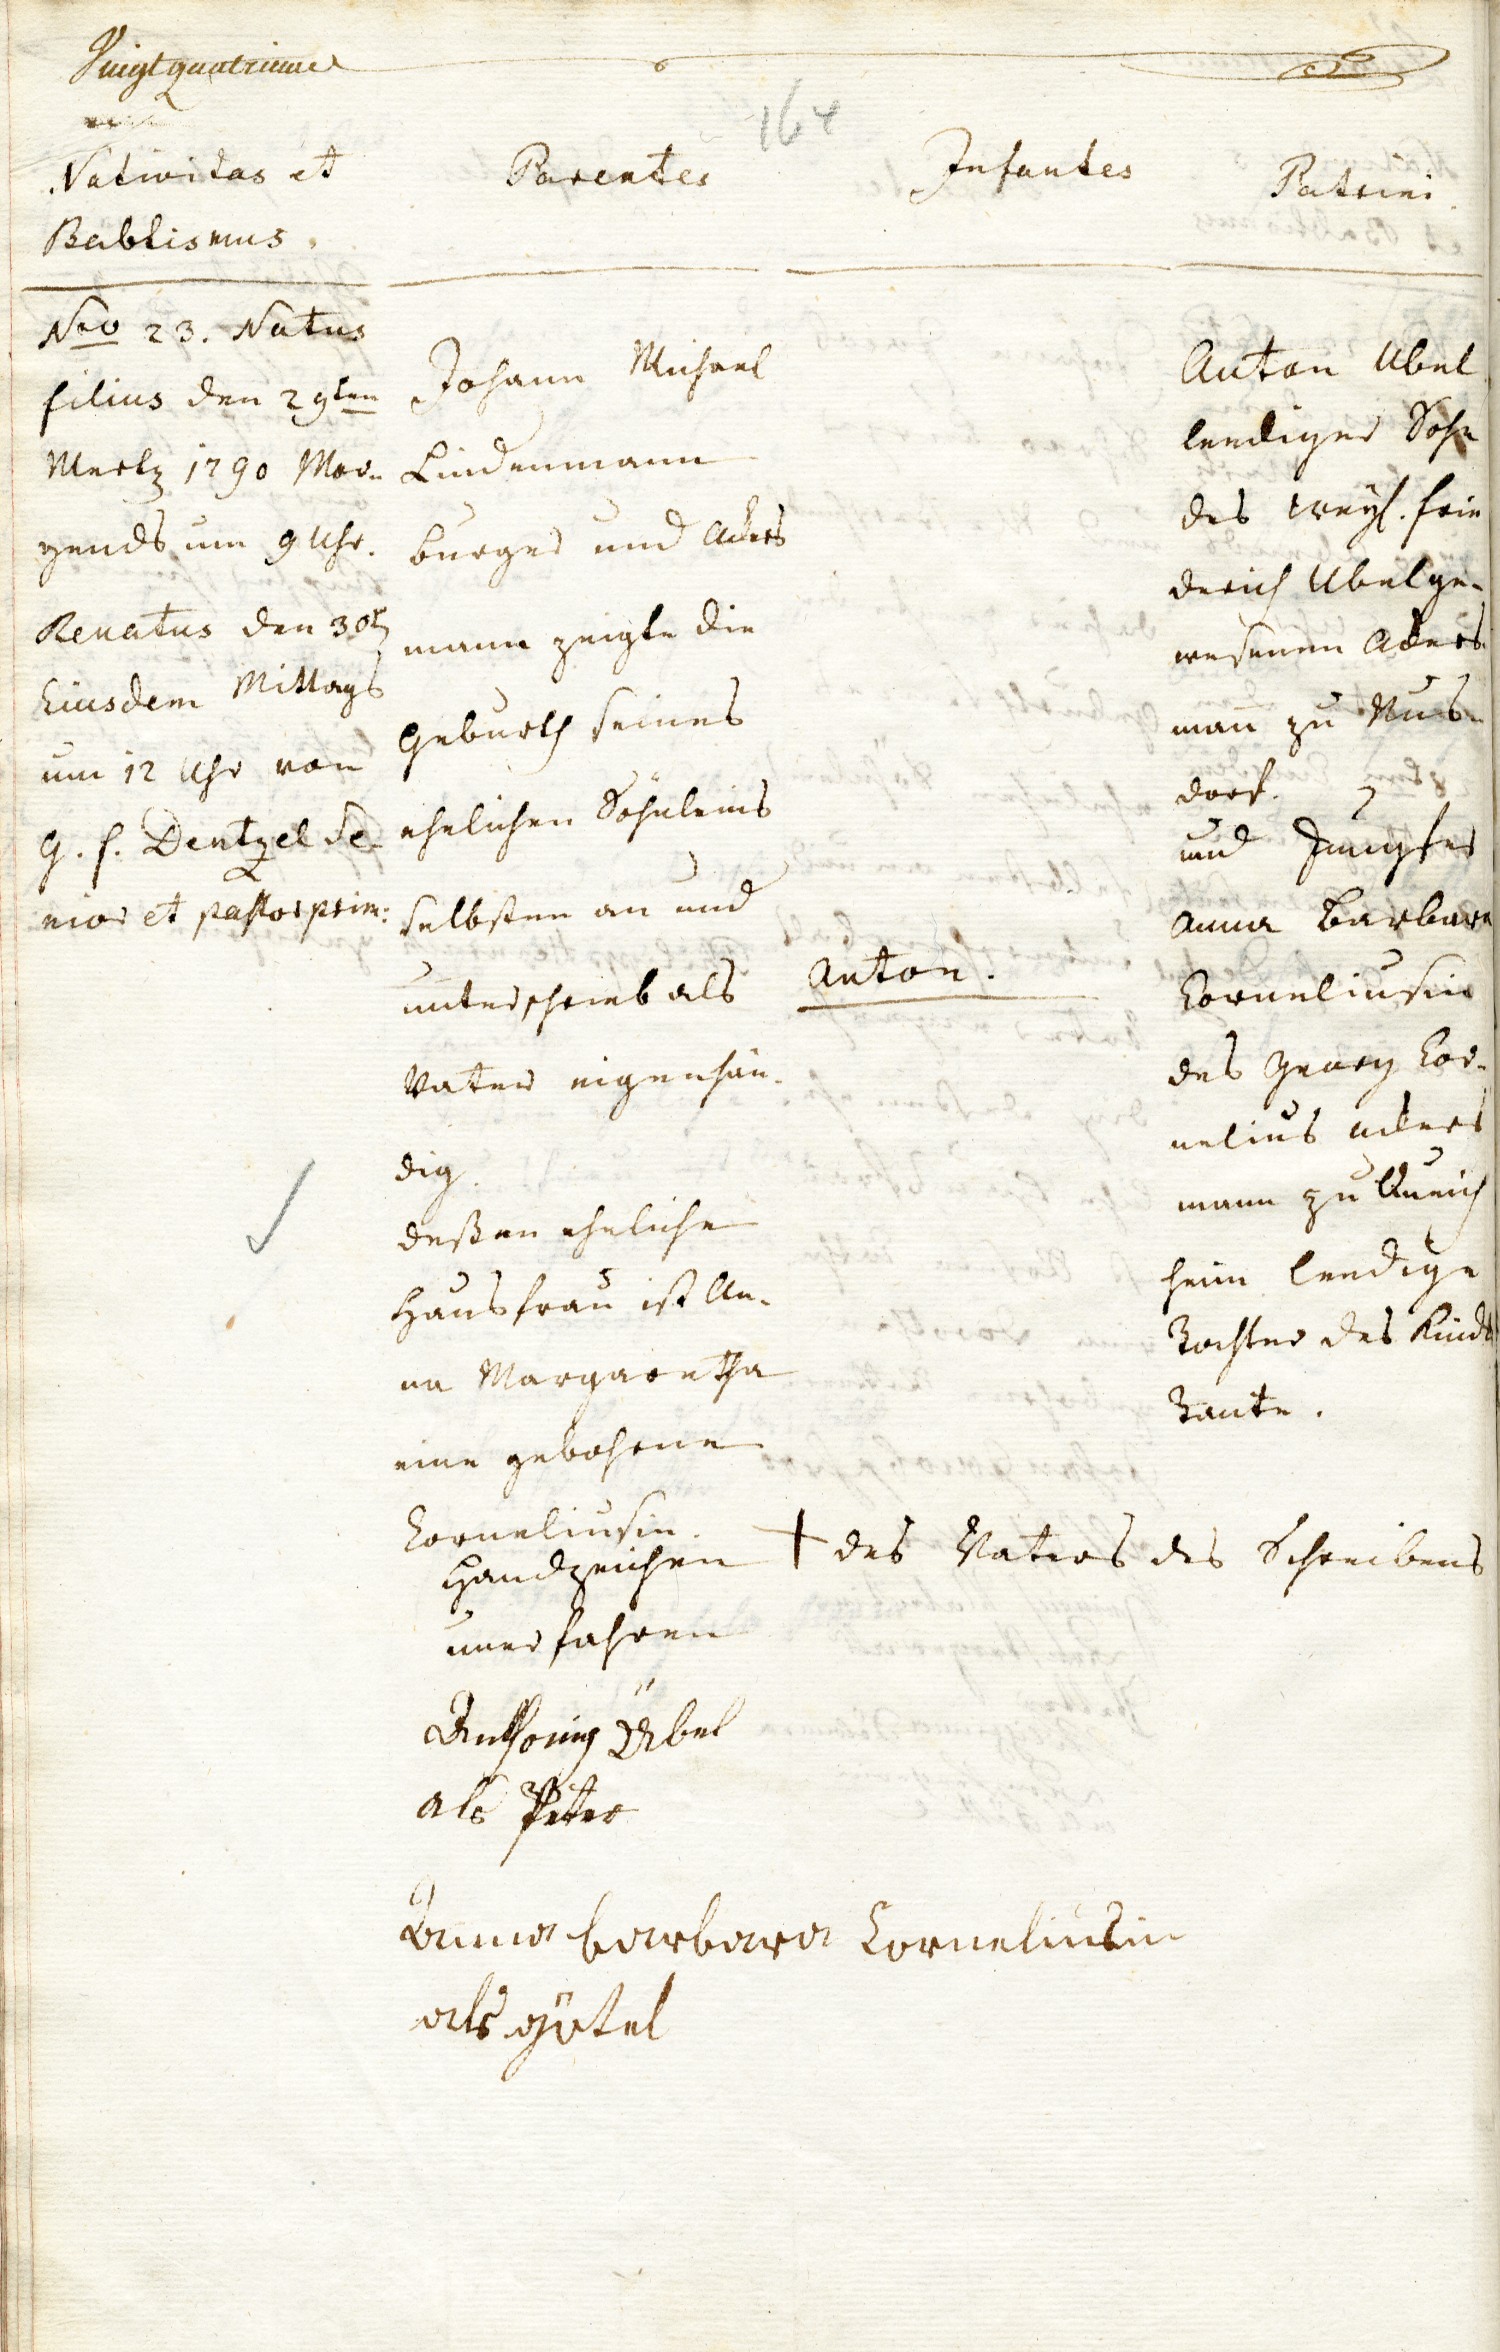 Vingt quatrieme
164
Nativitas et
Babtismus.
Parentes
Infantes
Patrini
Nro 23. Natus
filius den 29ten
Mertz 1790 Mor-
gends um 9 Uhr.
Renatus den 30t
Eiusdem Mittags
um 12 Uhr von
G. f. Dentzel Se-
nior et pastor prim:
Johann Michael
Lindenmann
burger und Ackers
mann zeigte die
Geburth seines
ehelichen Söhnleins
selbsten an und
unterschrieb als
Vater eigenhän-
dig.
deßen eheliche
Hausfrau ist An-
na Margaretha
eine gebohrene
Corneliusin.
Anton.
Anton Ubel
leediger Sohn
des weyl. frie
derich Ubel ge-
wesenen Ackers
mañ zu Nus-
dorf.
und Jungfer
Anna Barbara
Corneliusin
des Georg Cor-
nelius Ackers
mann zu Queich
heim leedige
Tochter des Kinds
Tante.
Handzeichen + des Vaters des Schreibens
unerfahren
Anthonig Übel
als Peter
Anna barbara Corneliusin
als götel